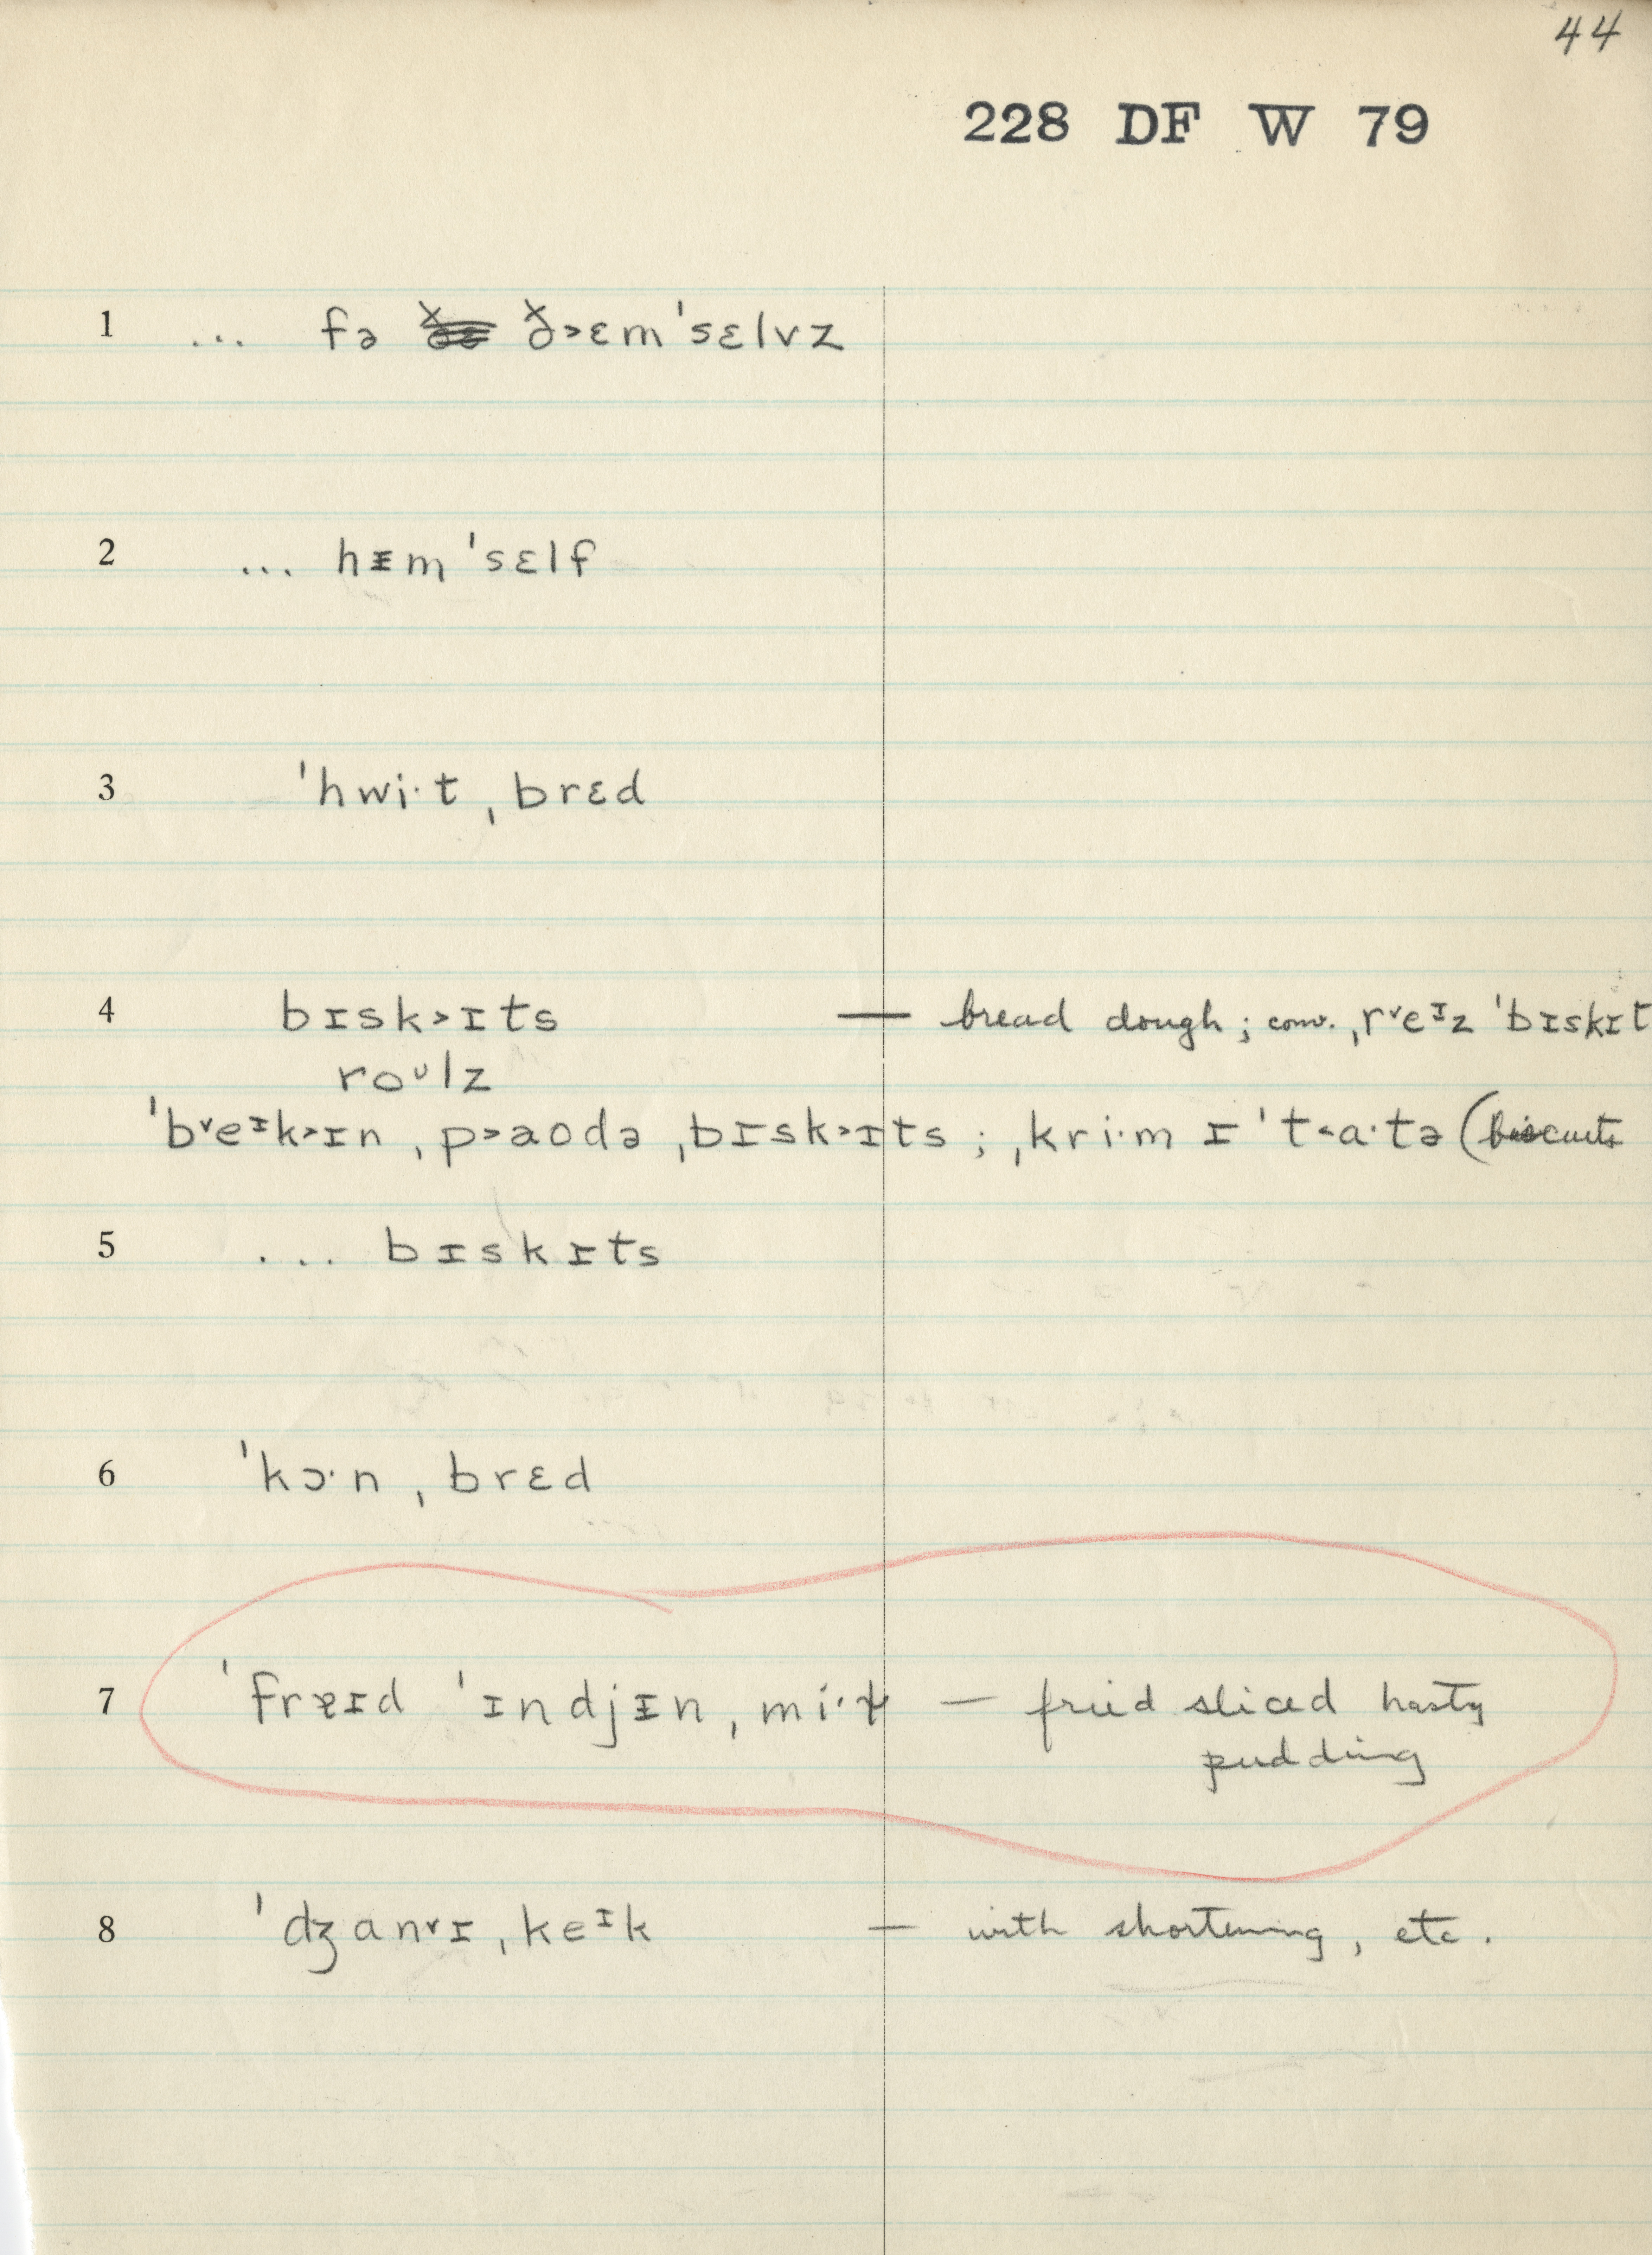 44
228 DF W 79
1 ... fə ðɛ ð˃ɛm'sɛlvz
2 ... hᵻm 'sɛlf
3 'hwi·t ˌbrɛd
4 bɪsk˃ɪts — bread dough; conv. ˌr˅eᶦz 'bɪskɪt
roᶸlz
'b˅eᶦk˃ɪn ˌp˃aʊdə ˌbɪsk˃ɪts ; ˌkri·m ɪ 't˂a·tə (biscuits
5 ... bɪskɪts
6 'kɔ·n ˌbrɛd
7 'frɐɪd 'ɪndjᵻn ˌmi·t — fried sliced hasty
pudding
8 'dʒan˅ɪ ˌkeᶦk — with shortening, etc.